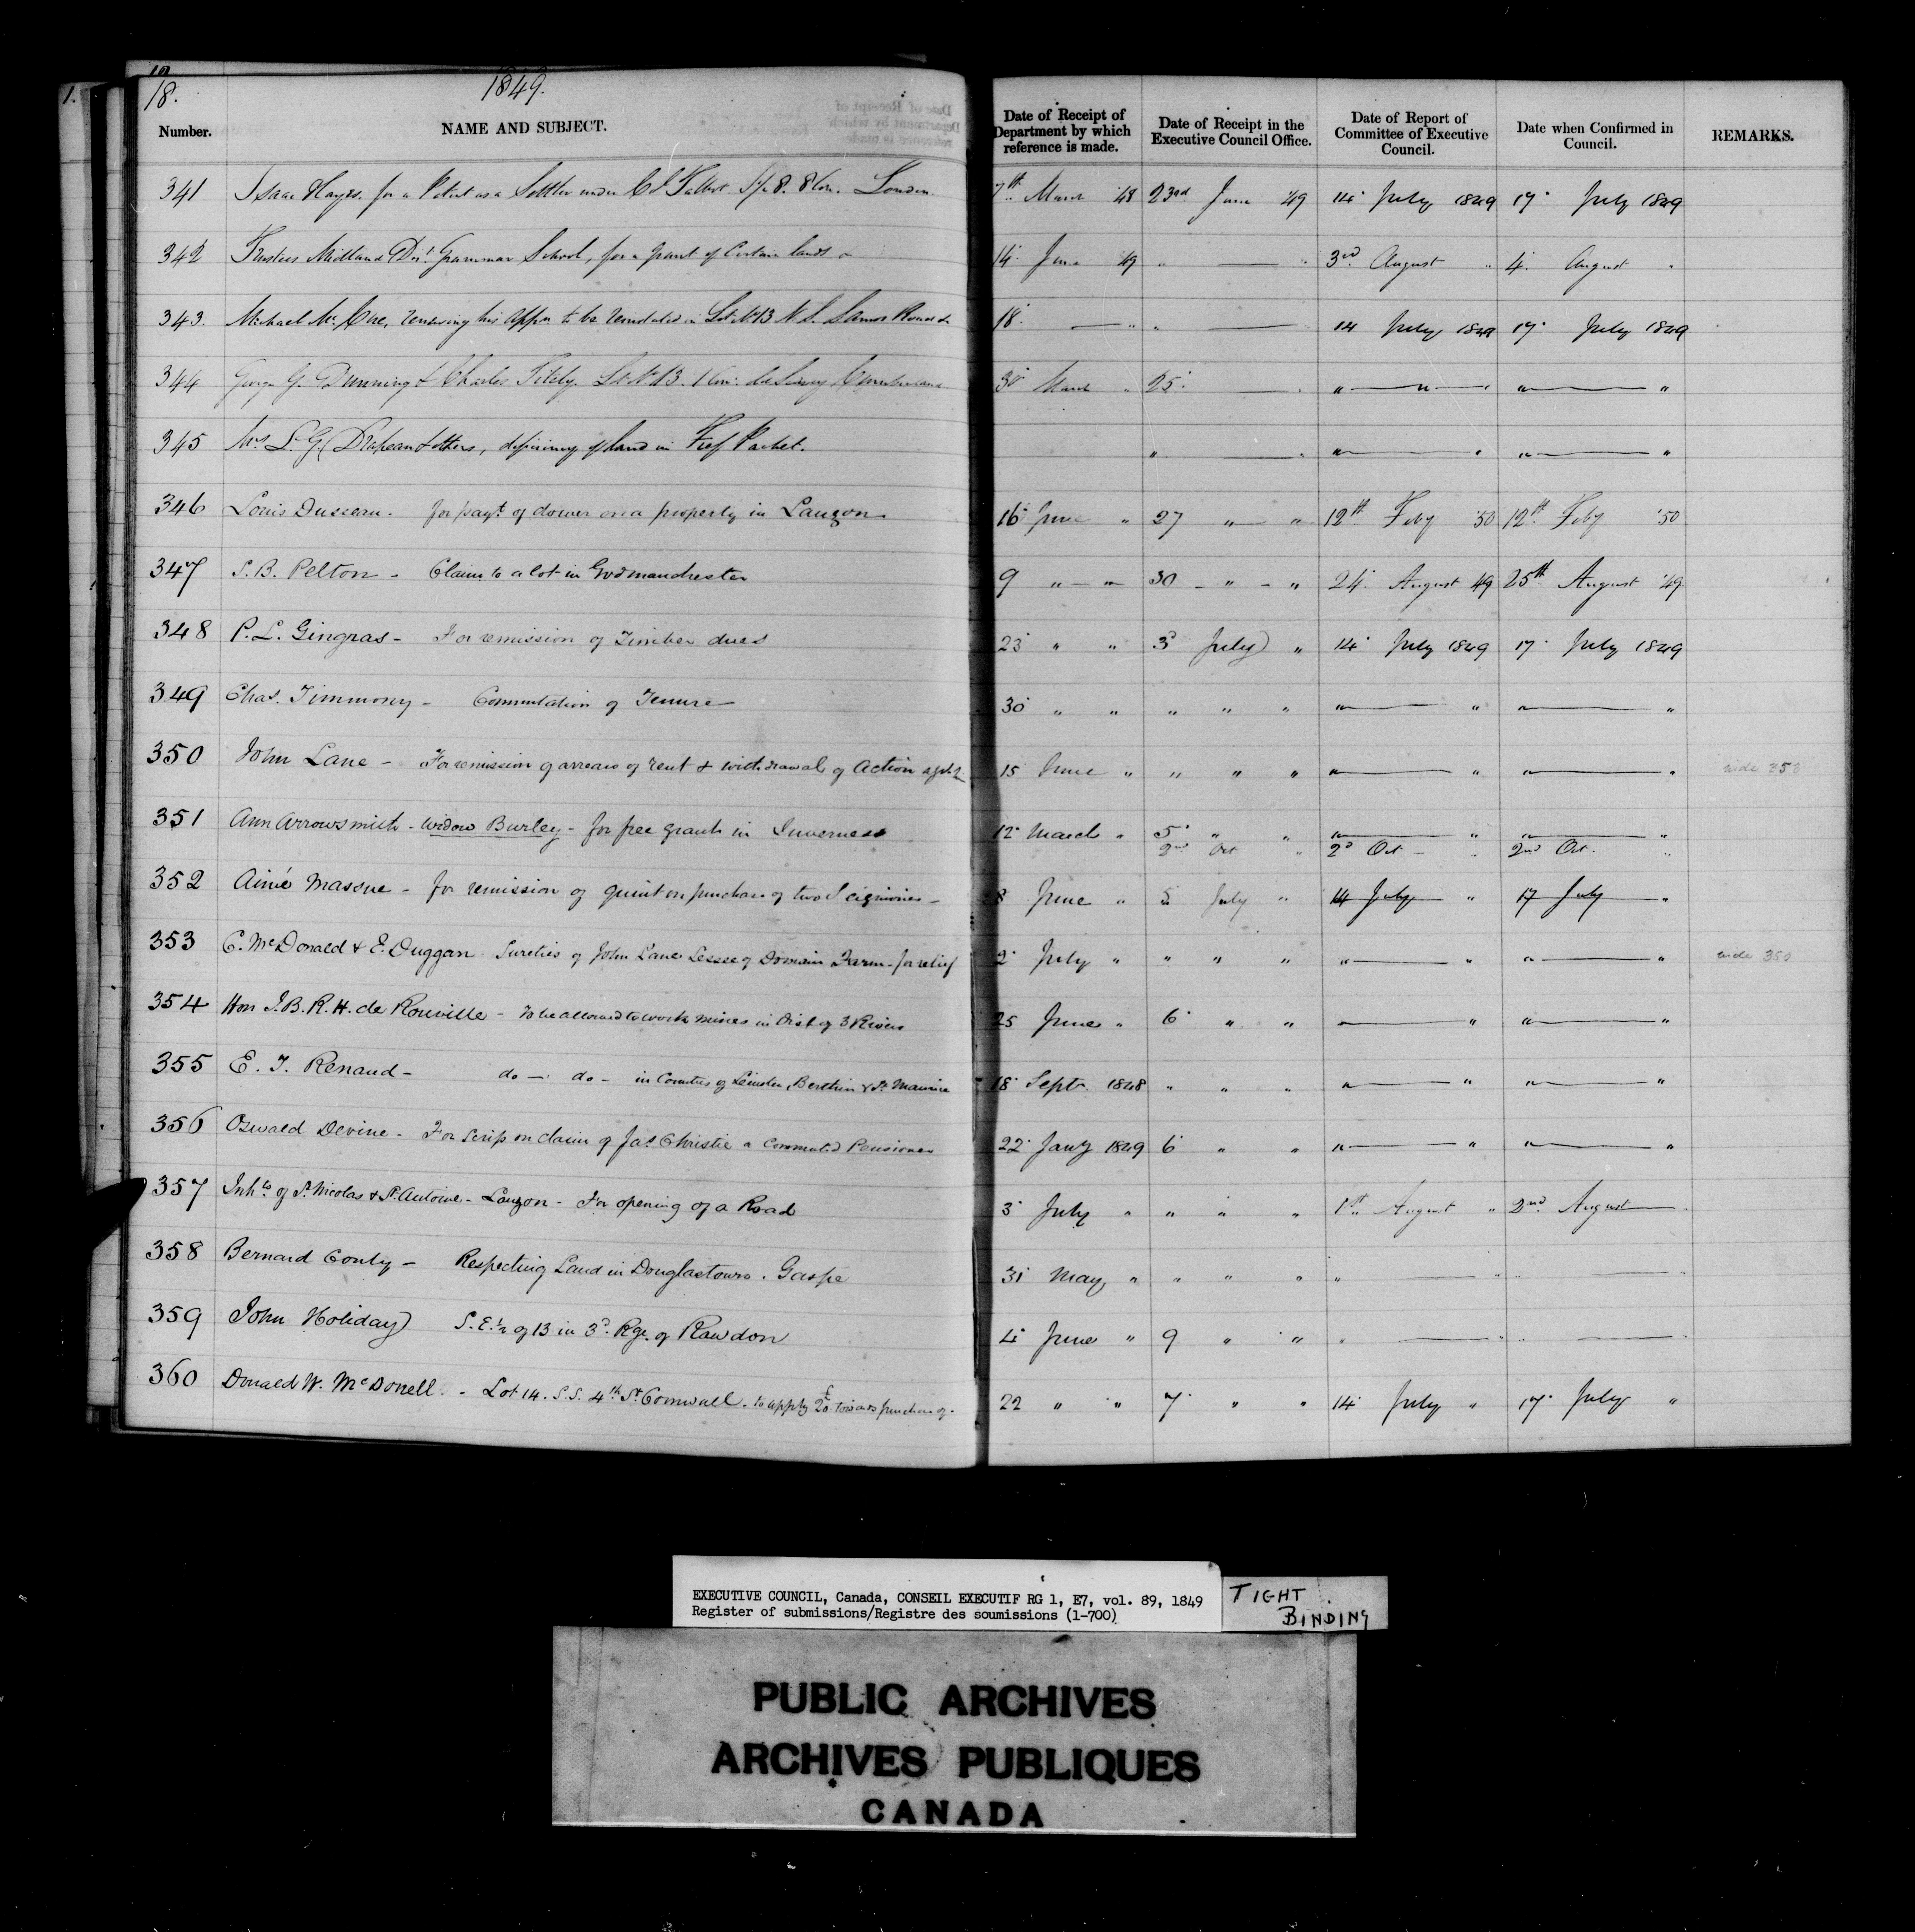 18. 1849.
Number. NAME AND SUBJECT. Date of Receipt of Department by which reference is made. Date of Receipt in the Executive Council Office. Date of Report of Committee of Executive Council. Date when Confirmed in Council. REMARKS.
341 Isaac Hayes. for a Patent as a Settler under Col Talbot. 8 Con. London 7th March '48 23rd June '49 14 July 1849 17 July 1849
342 Trustees Midland Dist Grammar School, for a grant of Certain lands 14 June '49 " — " 3rd August " 4 August "
343. Michael Mc , renewing his appn to be in Lot No 13 N. S. Road 18 — " " — 14 July 1849 17 July 1849
344 George G. Dunning & Charles . Lot No 13. 1 Con: Cumberland 30 March " 25 — " " — " — " " — "
345 Mrs L. G. Drapeau & others, deficiency of land in Fief Pachet. " — " " — " " — "
346 Louis Dusseau. for payt of dower on a property in Lauzon 16 June " 27 " — " 12th Feby '50 12th Feby '50
347 S. B. Pelton - Claim to a lot in Godmanchester 9 " — " 30 - " - " 24 August 49 25th August '49
348 P. L. Gingras - For remission of Timber dues 23 " " 3d July " 14 July 1849 17 July 1849
349 Chas. Timmony - Commutation of Tenure 30 " " " " " " — " " — "
350 John Lane - For remission of arrears of rent & withdrawal of Action agst 15 June " " " " " — " " — " vide 353
351 Ann Arrowsmith - Widow Burley - for free grant in Inverness 12 March " 5 " " " — " " — "
2nd Oct " 2d Oct - " 2nd Oct. "
352 Aimé Massue - for remission of quint on purchase of two Seigniories - 8 June " 5 July " 14 July " 17 July "
353 C. McDonald & E. Duggan Sureties of John Lane Lessee of Domain Farm - for relief 2 July " " " " " — " " — " vide 350
354 Hon J. B. R. H. de Rouville - To be allowed to work mines in Dist of 3 Rivers 25 June " 6 " " " — " " — "
355 E. J. Renaud - do - do - in Counties of Leinster, Berthier & St Maurice 18 Septr 1848 " " " " — " " — "
356 Oswald Devine - For Scrip on claim of Jas Christie a Commuted Pensioner 22 Jany 1849 6 " " " — " " — "
357 Inhts of St Nicolas & St Antoine - Lauzon - For opening of a Road 3 July " " " " 1st August " 2nd August — "
358 Bernard Conly - Respecting Land in Douglastown. Gaspé 31 May " " " " " — " " — "
359 John Holiday S. E. ½ of 13 in 3d Rge. of Rawdon 4 June " 9 " " " — " " — "
360 Donald W. McDonell. - Lot 14. S.S. 4th St Cornwall. to apply £20 towards purchase of. 22 " " 7 " " 14 July " 17 July "
EXECUTIVE COUNCIL, Canada, CONSEIL EXECUTIF RG 1, E7, vol. 89, 1849
Register of submissions/Registre des soumissions (1-700)
TIGHT
BINDING
PUBLIC ARCHIVES
ARCHIVES PUBLIQUES
CANADA